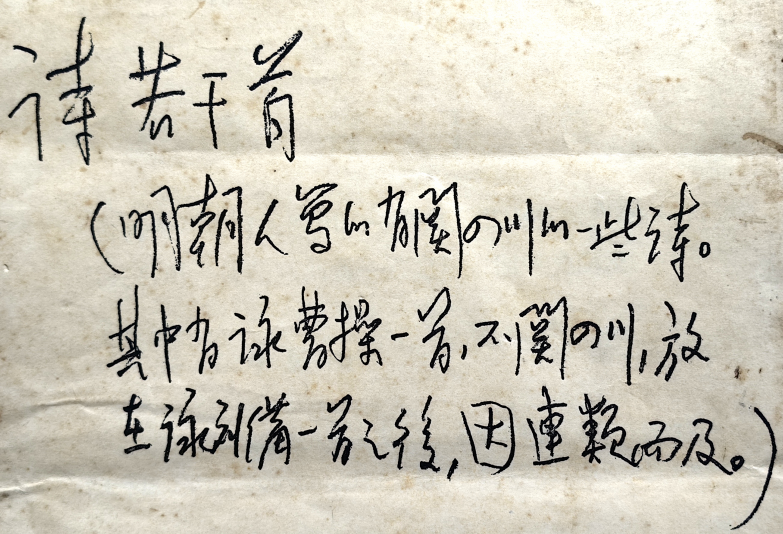 诗若干首
(明朝人写的有関四川的一些诗。
其中有詠曹操一首,不関四川,放
在詠刘備一首之後,因連類而及。)